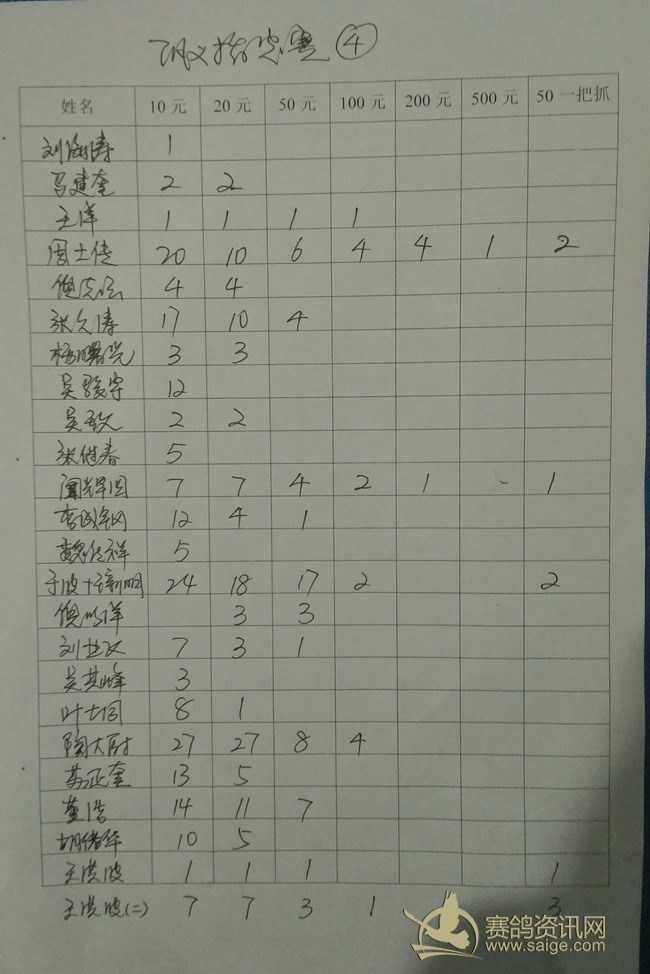 ④
姓名 10元 20元 50元 100元 200元 500元 50一把抓
刘海涛 1
吕建奎 2 2
王洋 1 1 1 1
周士传 20 10 6 4 4 1 2
4 4
张久涛 17 10 4
杨曙光 3 3
吴骏宇 12
吴 2 2
张继春 5
7 7 4 2 1 - 1
12 4 1
魏传祥 5
于波+ 24 18 17 2 2
倪 洋 3 3
刘 7 3 1
吴其峰 3
叶士同 8 1
陶大尉 27 27 8 4
苏正奎 13 5
董浩 14 11 7
胡 华 10 5
王洪波 1 1 1 1
王洪波(二) 7 7 3 1 3
赛鸽资讯网
www.saige.com